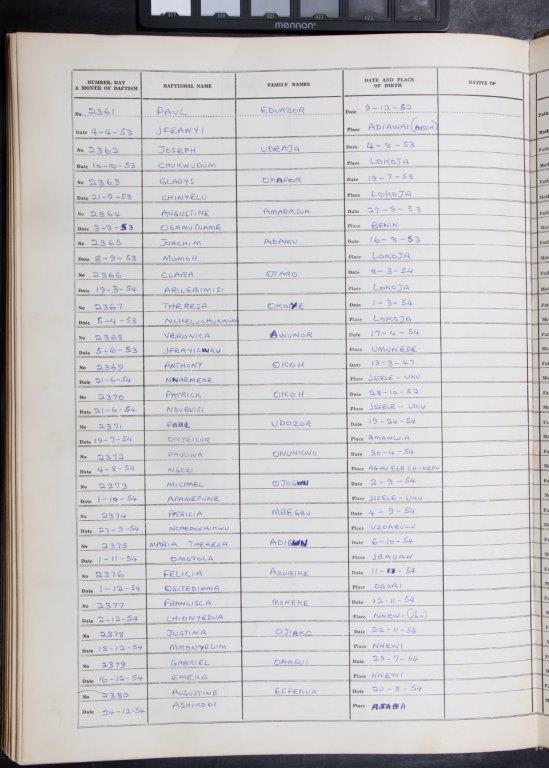 mennon
NUMBER, DAY & MONTH OF BAPTISM BAPTISMAL NAME FAMILY NAMES DATE AND PLACE OF BIRTH NATIVE OF
No 2361 PAUL EDUAZOR Date 9-12-52
Date 4-4-53 IFEANYI Place ADIAWAI
No 2362 JOSEPH UDEAJA Date 4-8-53
Date 10-10-53 CHUKWUDUM Place LOKOJA
No 2363 GLADYS OKAFOR Date 19-7-53
Date 21-9-53 CHINYELU Place LOKOJA
No 2364 AUGUSTINE AMADASUN Date 27-8-53
Date 3-9-53 OSAMUDIAME Place BENIN
No 2365 JOACHIM ADAMU Date 16-8-53
Date 8-9-53 MOMOH Place LOKOJA
No 2366 CLARA OTARO Date 8-3-54
Date 19-3-54 ARILEBIMISI Place LOKOJA
No 2367 THERESA OKOYE Date 1-3-54
Date 5-4-53 Place LOKOJA
No 2368 VERONICA AWUNOR Date 17-4-54
Date 5-6-53 IFEAYICHUKU Place UMUNEDE
No 2369 ANTHONY OKOH Date 13-3-47
Date 21-6-54 NNAEMEKE Place ISSELE-UKU
No 2370 PATRICK OKOH Date 28-10-52
Date 21-6-54 NDUBUISI Place ISSELE-UKU
No 2371 PAUL UDOZOR Date 19-24-54
Date 19-7-54 Place AMAWUIA
No 2372 PAULINA ONUNKWO Date 30-4-54
Date 4-8-54 NGOZI Place
No 2373 MICHAEL OJOGWU Date 2-9-54
Date 1-10-54 APAMEFUNE Place ISSELE-UKU
No 2374 PATRICIA MBEGBU Date 4-9-54
Date 27-9-54 Place UZOABULU
No 2375 MARIA THERESA ADIGUN Date 6-10-54
Date 1-11-54 OMOTOLA Place IBADAN
No 2376 FELICIA AZUBIKE Date 11-11-54
Date 1-12-54 OSITEDIMMA Place OGORI
No 2377 FRANCISCA MONEKE Date 12-11-54
Date 2-12-54 CHIONYEDUA Place NNEWI
No 2378 JUSTINA OJIAKO Date 22-11-54
Date 18-12-54 MMONYELUM Place NNEWI
No 2379 GABRIEL ORAGUI Date 29-7-54
Date 16-12-54 EMEKA Place NNEWI
No 2380 AUGUSTINE EFFEDUA Date 20-8-54
Date 24-12-54 ASHIKODI Place ASABA